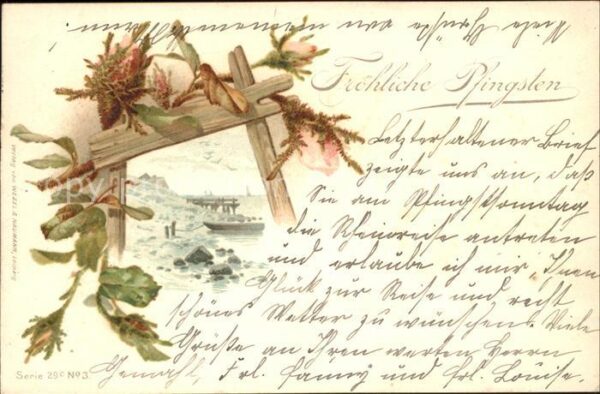 Fröhliche Pfingsten
Letzterhaltener Brief
zeigte uns an, daß
Sie am Pfingstsonntag
die Rheinreise antreten
und erlaube ich mir Ihnen
Glück zur Reise und recht
schönes Wetter zu wünschen. Viele
Grüße an Ihren werten Herrn
Gemahl, Frl. Fanny und Frl. Louise.
Viele Grüße von
VERLAG VON WEZEL & NAUMANN, LEIPZIG.
Serie 29c No 3.